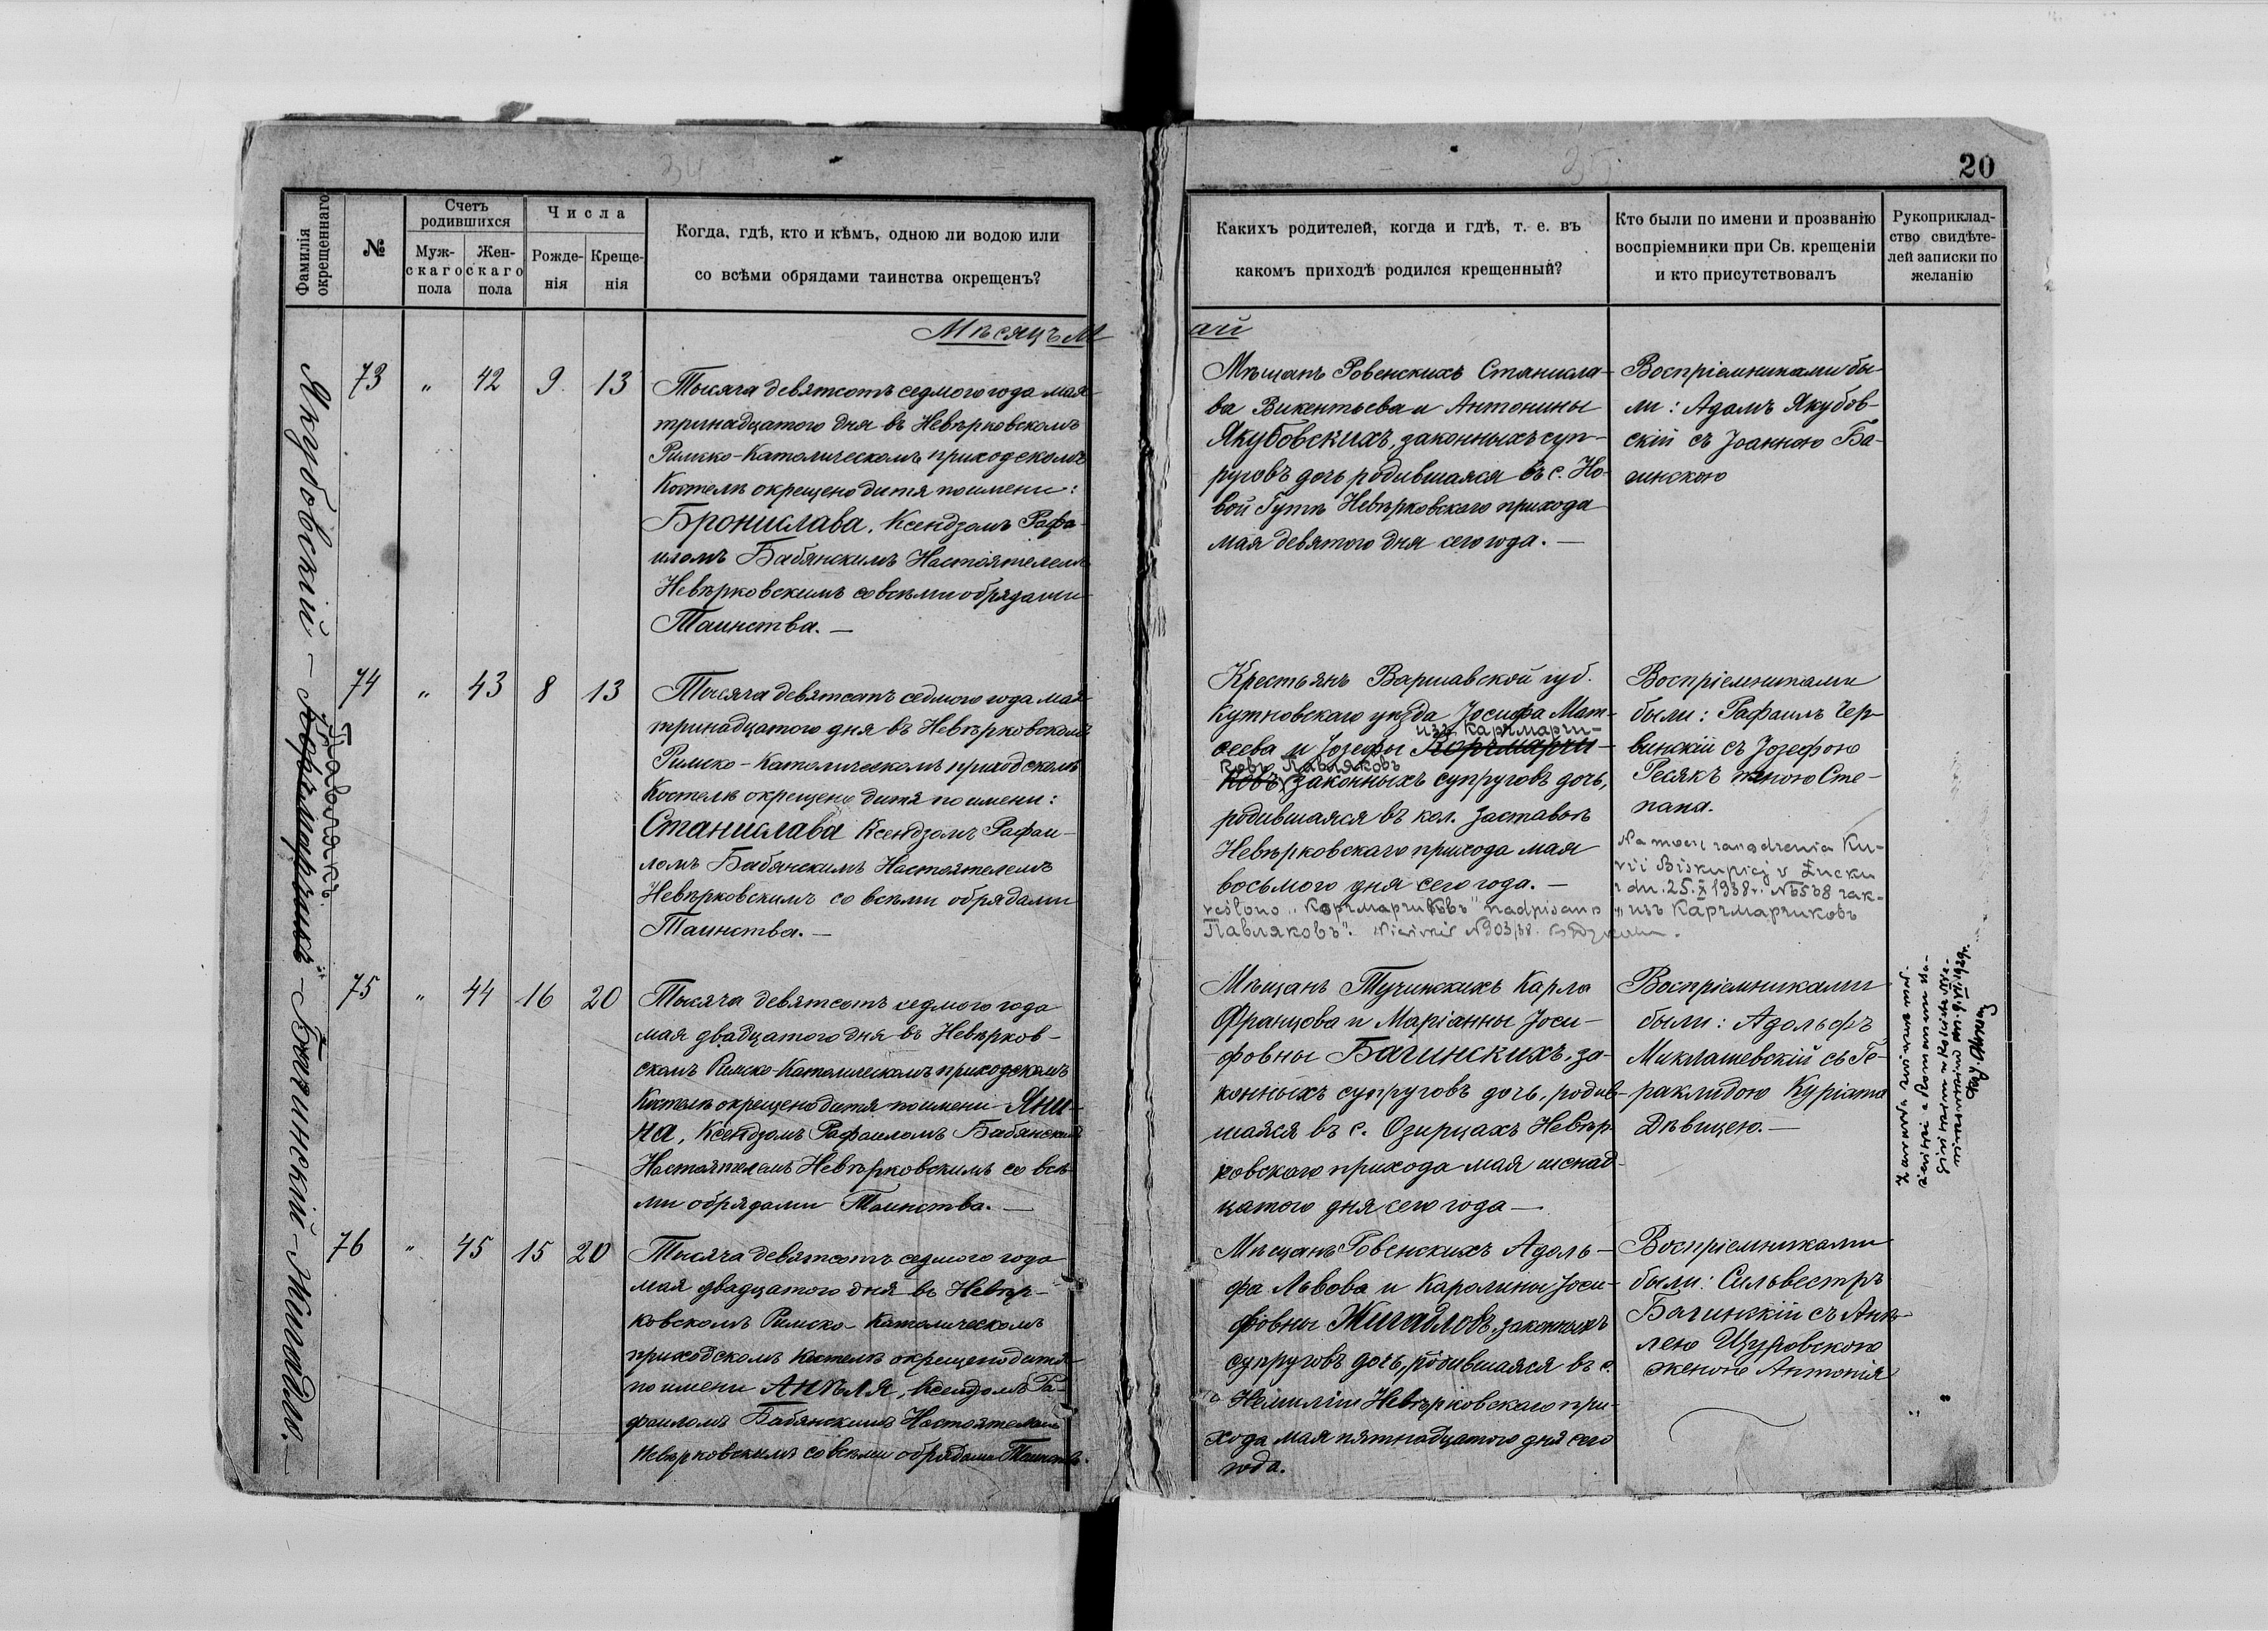 20
Фамилія
окрещеннаго
№
Счетъ
родившихся
Муж-
скаго
пола
Жен-
скаго
пола
Числа
Рожде-
нія
Креще-
нія
Когда, гдѣ, кто и кѣмъ, одною ли водою или
со всѣми обрядами таинства окрещенъ?
Какихъ родителей, когда и гдѣ, т. е. въ
какомъ приходѣ родился крещенный?
Кто были по имени и прозванію
воспріемники при Св. крещеніи
и кто присутствовалъ
Рукоприклад-
ство свидѣте-
лей записки по
желанію
Мѣсяцъ Май
Якубовскій –
73 " 42 9 13
Тысяча девятсотъ седмого года мая
тринадцатого дня въ Невѣрковскомъ
Римско-Католическомъ приходскомъ
Костелѣ окрещено дитя по имени:
Бронислава, Ксендзомъ Рафа-
иломъ Бабянскимъ Настоятелемъ
Невѣрковскимъ со всѣми обрядами
Таинства. –
Мѣщанъ Ровенскихъ Станисла-
ва Викентьева и Антонины
Якубовскихъ, законныхъ суп-
руговъ дочь родившаяся въ с. Но-
вой Гутѣ Невѣрковскаго прихода
мая девятого дня сего года. –
Воспріемниками бы-
ли: Адамъ Якубов-
скій съ Іоанною Ба-
гинскою
Павлякъ
74 " 43 8 13
Тысяча девятсотъ седмого года мая
тринадцатого дня въ Невѣрковскомъ
Римско-Католическомъ приходскомъ
Костелѣ окрещено дитя по имени:
Станислава Ксендзомъ Рафаи-
ломъ Бабянскимъ Настоятелемъ
Невѣрковскимъ со всѣми обрядами
Таинства. –
Крестьянъ Варшавской губ.
Кутновскаго уѣзда Іосифа Мат-
изъ Карчмарчи-
ѳеева и Іозефы Корчмарчи-
ковъ Павляковъ
ковъ, законныхъ супруговъ дочь,
родившаяся въ кол. Заставье
Невѣрковскаго прихода мая
восьмого дня сего года. –
Воспріемниками
были: Рафаилъ Чер-
винскій съ Іозефою
Песякъ женою Сте-
пана.
Na mocy zarządzenia Ku-
rii Biskupiej w Łucku
z dn. 25.X 1938 r. № 5538 zak-
reślono „Корчмарчиковъ" nadpisano „изъ Карчмарчиковъ
Павляковъ". № 903/38.
Багинскій –
75 " 44 16 20
Тысяча девятсотъ седмого года
мая двадцатого дня въ Невѣрков-
скомъ Римско-Католическомъ приходскомъ
Костелѣ окрещено дитя по имени Яни-
на, Ксендзомъ Рафаиломъ Бабянскимъ
Настоятелемъ Невѣрковскимъ со всѣ-
ми обрядами Таинства. –
Мѣщанъ Тучинскихъ Карла
Францова и Маріанны Іоси-
фовны Багинскихъ, за-
конныхъ супруговъ дочь, родив-
шаяся въ с. Озирцахъ Невѣр-
ковскаго прихода мая шеснад-
цатого дня сего года –
Воспріемниками
были: Адольфъ
Миклашевскій съ Ге-
раклидою Куріата
Дѣвицею. –
Жигадло. –
76 " 45 15 20
Тысяча девятсотъ седмого года
мая двадцатого дня въ Невѣр-
ковскомъ Римско-Католическомъ
приходскомъ Костелѣ окрещено дитя
по имени Анѣля, Ксендзомъ Ра-
фаиломъ Бабянскимъ Настоятелемъ
Невѣрковскимъ со всѣми обрядами Таинств.
Мѣщанъ Ровенскихъ Адоль-
фа Львова и Каролины Іоси-
фовны Жигадловъ, законныхъ
супруговъ дочь, родившаяся въ с.
Немиліи Невѣрковскаго при-
хода мая пятнадцатого дня сего
года.
Воспріемниками
были: Сильвестръ
Багинскій съ Анѣ-
лею Щуровскою
женою Антонія